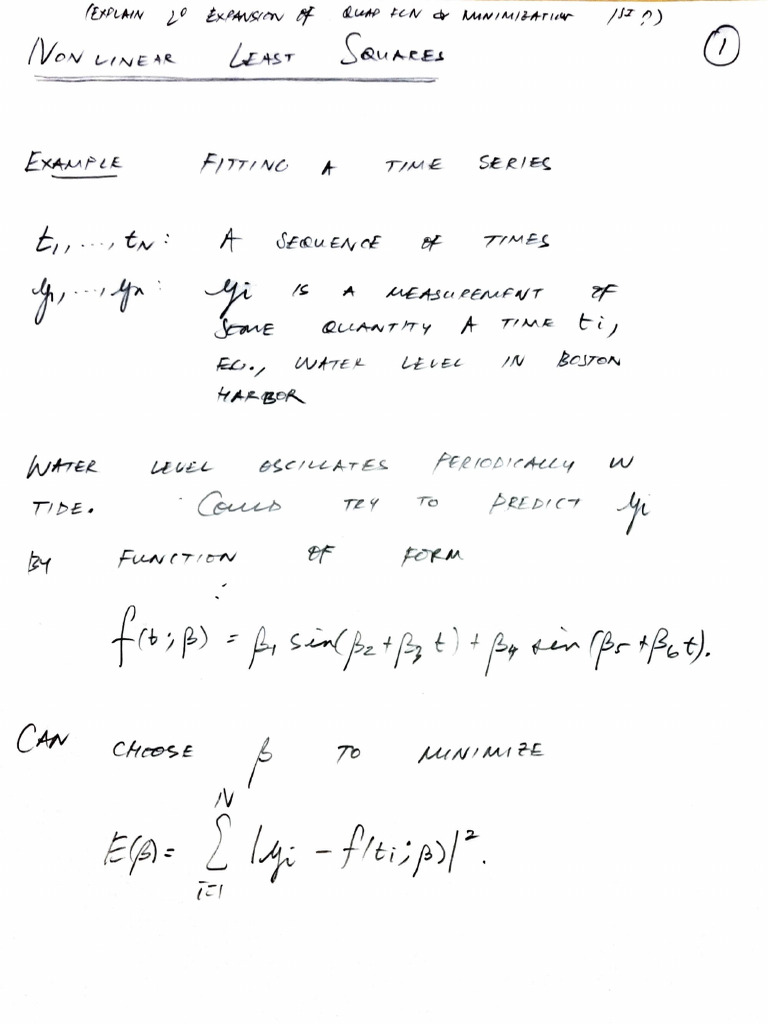 (EXPLAIN 2° EXPANSION OF QUAD FCN & MINIMIZATION 1ST?)
NONLINEAR LEAST SQUARES
①
EXAMPLE FITTING A TIME SERIES
t₁, ..., t_N: A SEQUENCE OF TIMES
y₁, ..., y_n: y_i IS A MEASUREMENT OF
SOME QUANTITY A TIME t_i,
EG., WATER LEVEL IN BOSTON
HARBOR
WATER LEVEL OSCILLATES PERIODICALLY W
TIDE. COULD TRY TO PREDICT y_i
BY FUNCTION OF FORM
f(t; β) = β₁ sin(β₂ + β₃ t) + β₄ sin(β₅ + β₆ t).
CAN CHOOSE β TO MINIMIZE
E(β) = ∑_{i=1}^{N} |y_i - f(t_i; β)|².